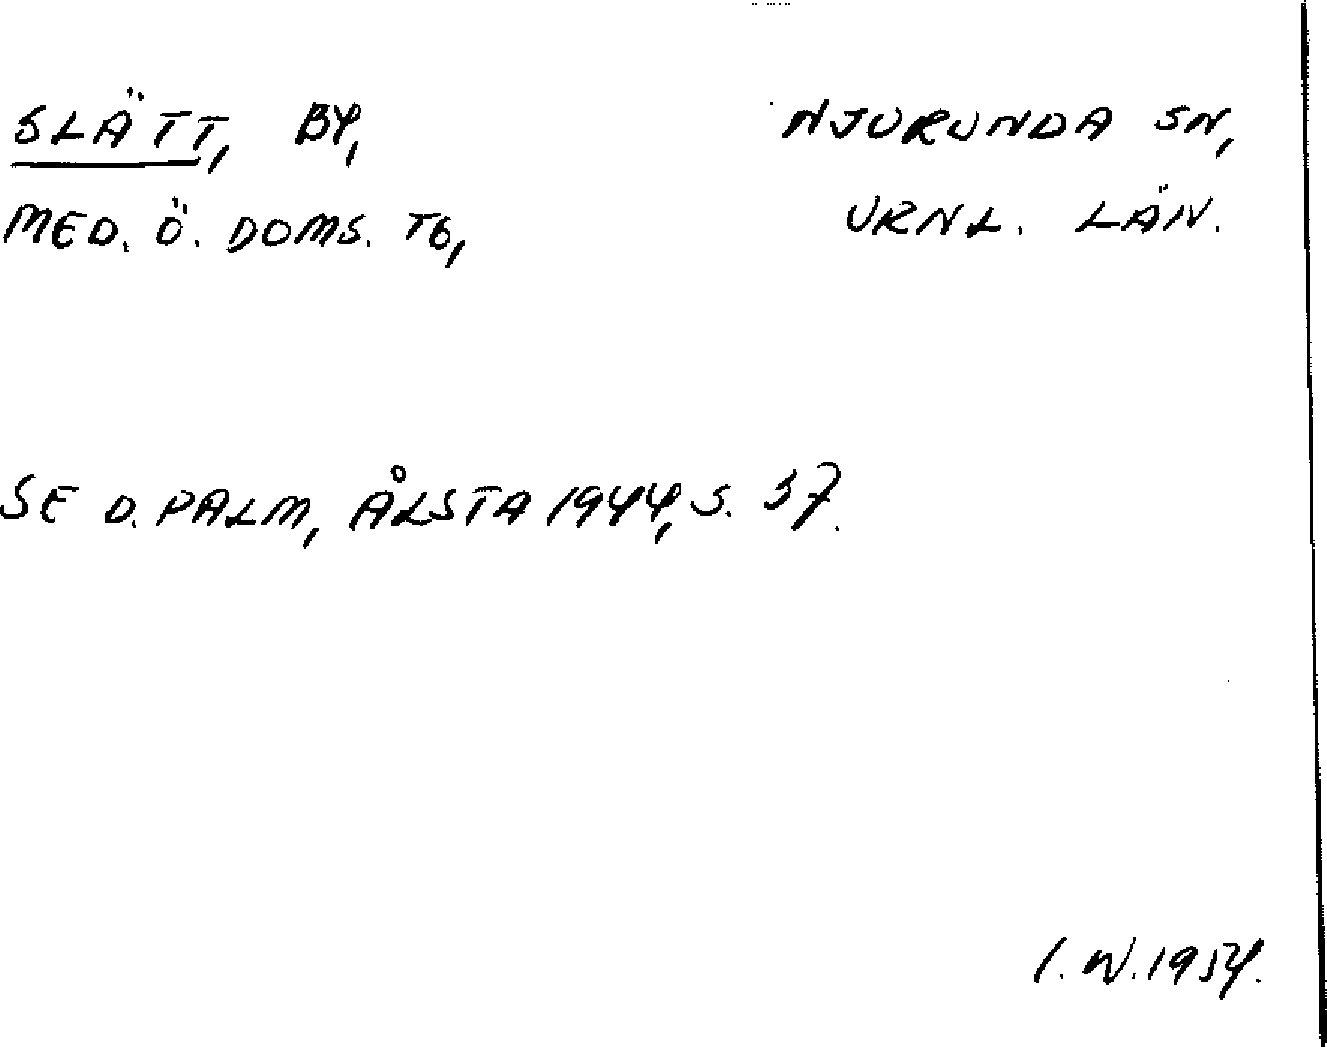 SLÄTT, BY, NJURUNDA SN,
MED. Ö. DOMS. TG, VRNL. LÄN.
SE D. PALM, ÅLSTA 1944, S. 37.
I. W. 1954.